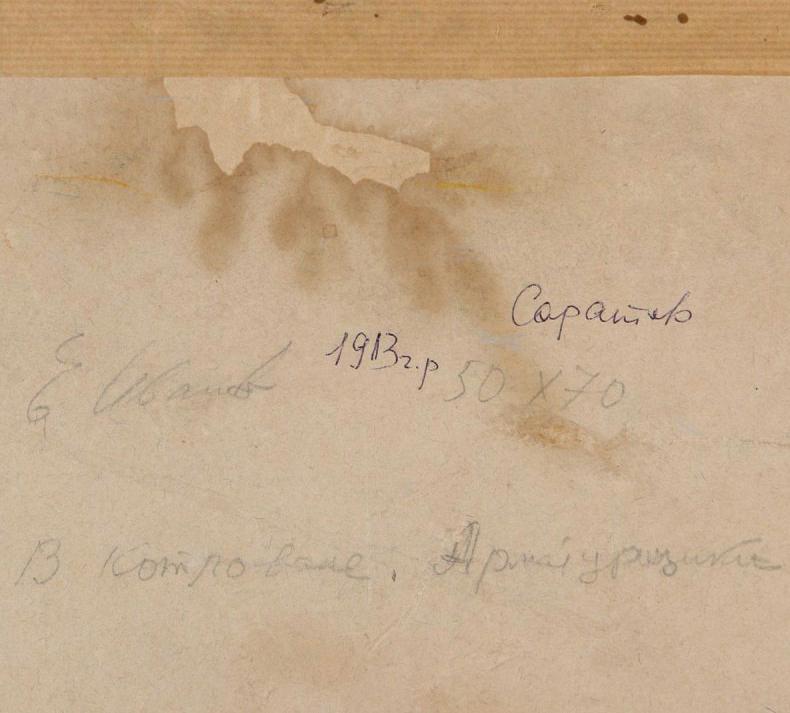 Саратов
Е Иванов 1913 г.р 50 X 70
В котловане. Арматурщики